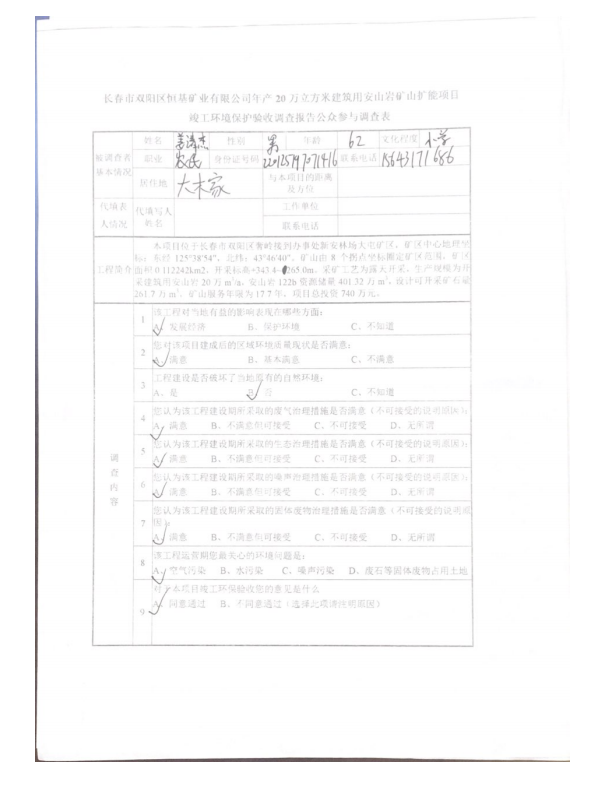 长春市双阳区恒基矿业有限公司年产 20 万立方米建筑用安山岩矿山扩能项目
竣工环境保护验收调查报告公众参与调查表
被调查者基本情况 姓名 性别 男 年龄 62 文化程度 小学
职业 农民 身份证号码 联系电话 15643171686
居住地 大木家 与本项目的距离及方位
代填表人情况 代填写人姓名 工作单位
联系电话
工程简介 本项目位于长春市双阳区奢岭接到办事处新安林场大屯矿区。矿区中心地理坐
标：东经 125°38′54″，北纬：43°46′40″。矿山由 8 个拐点坐标圈定矿区范围，矿区
面积 0.112242km2，开采标高+343.4-265.0m。采矿工艺为露天开采。生产规模为开
采建筑用安山岩 20 万 m³/a。安山岩 122b 资源储量 401.32 万 m³。设计可开采矿石量
261.7 万 m³。矿山服务年限为 17.7 年。项目总投资 740 万元。
调查内容
1 该工程对当地有益的影响表现在哪些方面：
A、发展经济 B、保护环境 C、不知道
2 您对该项目建成后的区域环境质量现状是否满意：
A、满意 B、基本满意 C、不满意
3 工程建设是否破坏了当地原有的自然环境：
A、是 B、否 C、不知道
4 您认为该工程建设期所采取的废气治理措施是否满意（不可接受的说明原因）：
A、满意 B、不满意但可接受 C、不可接受 D、无所谓
5 您认为该工程建设期所采取的生态治理措施是否满意（不可接受的说明原因）：
A、满意 B、不满意但可接受 C、不可接受 D、无所谓
6 您认为该工程建设期所采取的噪声治理措施是否满意（不可接受的说明原因）：
A、满意 B、不满意但可接受 C、不可接受 D、无所谓
7 您认为该工程建设期所采取的固体废物治理措施是否满意（不可接受的说明原
因）：
A、满意 B、不满意但可接受 C、不可接受 D、无所谓
8 该工程运营期您最关心的环境问题是：
A、空气污染 B、水污染 C、噪声污染 D、废石等固体废物占用土地
9 对于本项目竣工环保验收您的意见是什么
A、同意通过 B、不同意通过（选择此项请注明原因）